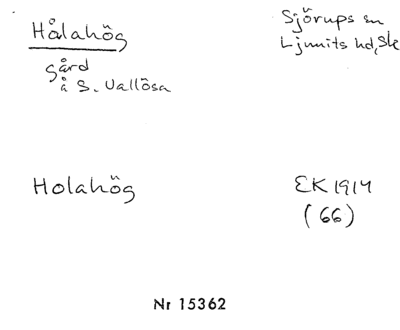 Hålahög
gård
å S. Vallösa
Sjörups sn
Ljunits hd, Sk
Holahög
EK 1914
(66)
Nr 15362